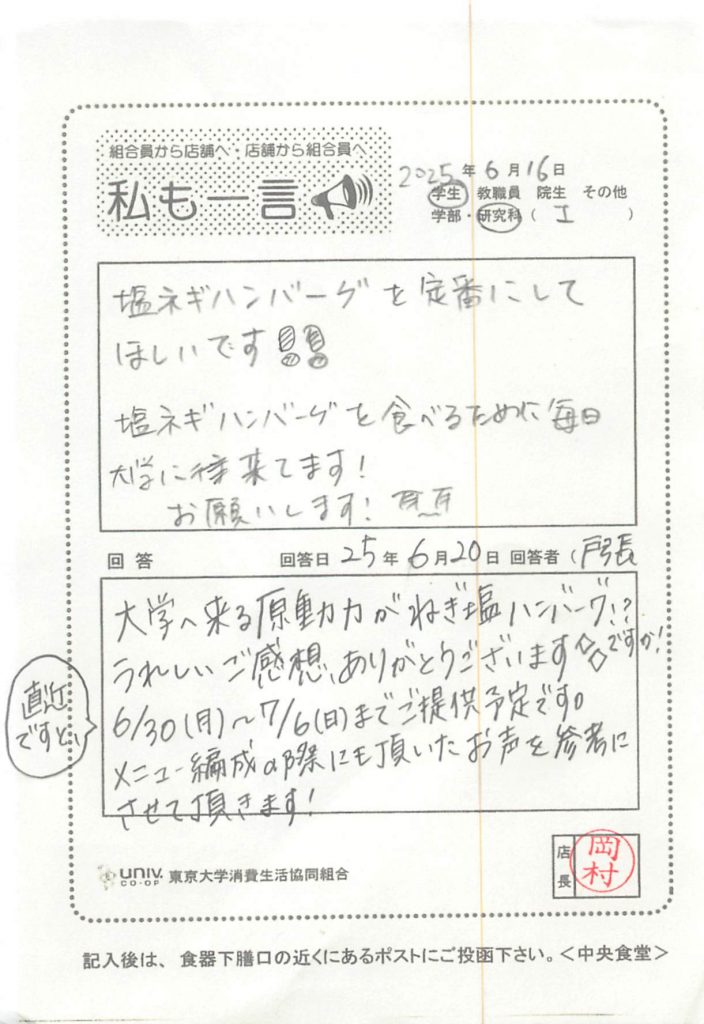 組合員から店舗へ・店舗から組合員へ
私も一言
2025年6月16日
学生 教職員 院生 その他
学部・研究科（ 工 ）
塩ネギハンバーグを定番にして
ほしいです!!
塩ネギハンバーグを食べるために毎日
大学に来てます!
お願いします!
回答 回答日 25年6月20日 回答者（戸張
大学へ来る原動力がねぎ塩ハンバーグ!?
ですか!
うれしいご感想、ありがとうございます
直近
ですと、
6/30(月)〜7/6(日)までご提供予定です。
メニュー編成の際にも頂いたお声を参考に
させて頂きます!
UNIV.
CO-OP
東京大学消費生活協同組合
店長
岡村
記入後は、食器下膳口の近くにあるポストにご投函下さい。＜中央食堂＞